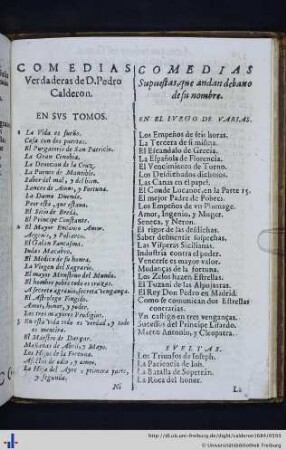 COMEDIAS
Verdaderas de D. Pedro
Calderon.
EN SVS TOMOS.
La Vida es sueño.
Casa con dos puertas.
El Purgatorio de San Patricio.
La Gran Cenobia.
La Devocion de la Cruz.
La Puente de Mantible.
Saber del mal, y del bien.
Lances de Amor, y Fortuna.
La Dama Duende.
Peor està, que estava.
El Sitio de Bredà.
El Principe Constante.
El Mayor Encanto Amor.
Argenis, y Poliarco.
El Galan Fantasma.
Iudas Macabeo.
El Medico de su honra.
La Virgen del Sagrario.
El mayor Monstruo del Mundo.
El hombre pobre todo es trazas.
A secreto agravio, secreta vengança.
El Astrologo Fingido.
Amor, honor, y poder.
Los tres mayores Prodigios.
En esta vida todo es verdad, y todo
es mentira.
El Maestro de Dançar.
Mañanas de Abril, y Mayo.
Los Hijos de la Fortuna.
Afectos de odio, y amor.
La Hija del Ayre, primera parte,
y segunda.
Ni
COMEDIAS
Supuestas, que andan debaxo
de su nombre.
EN EL IVEGO DE VARIAS.
Los Empeños de seis horas.
La Tercera de si misma.
El Escandalo de Grecia.
La Española de Florencia.
El Vencimiento de Turno.
Los Desdichados dichosos.
Las Canas en el papel.
El Conde Lucanor, en la Parte 15.
El mejor Padre de Pobres.
Los Empeños de vn Plumage.
Amor, Ingenio, y Muger.
Seneca, y Neron.
El rigor de las desdichas.
Saber desmentir sospechas.
Las Visperas Sicilianas.
Industria contra el poder.
Vencerse es mayor valor.
Mudanças de la fortuna.
Los Zelos hazen Estrellas.
El Tuzani de las Alpujarras.
El Rey Don Pedro en Madrid.
Como se comunican dos Estrellas
contrarias.
Vn castigo en tres venganças.
Sucessos del Principe Lisardo.
Marco Antonio, y Cleopatra.
SVELTAS.
Los Triunfos de Ioseph.
La Paciencia de Iob.
La Batalla de Sopetran.
La Roca del honor.
La
http://dl.ub.uni-freiburg.de/diglit/calderon1684/0103
© Universitätsbibliothek Freiburg